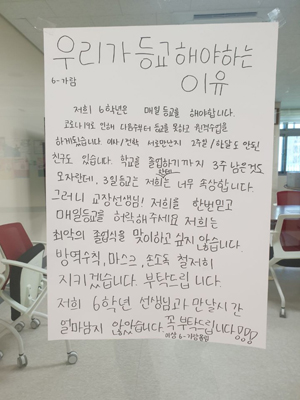 우리가 등교해야하는
이유
6-가람
저희 6학년은 매일 등교를 해야합니다.
코로나19로 인해 다음주부터 등교를 못하고 원격수업을
하게됬습니다. 서로만난지 2주일/한달도 안된
친구도 있습니다. 학교를 졸업하기까지 3주 남은것도
모자란데, 3일등교는 저희는 너무 속상합니다.
그러니 교장선생님! 저희를 한번믿고
매일등교를 허락해주세요 저희는
최악의 졸업식을 맞이하고 싶지 않습니다.
방역수칙, 마스크, 손소독 철저히
지키겠습니다. 부탁드립니다.
저희 6학년 선생님과 만날시간
얼마남지 않았습니다. 꼭 부탁드립니다!!!
이상 6-가람올림